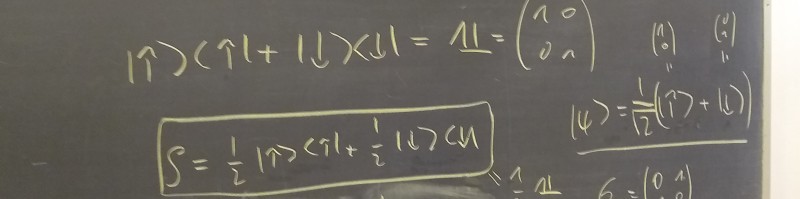 |↑⟩⟨↑| + |↓⟩⟨↓| = 𝟙 = (1 0 / 0 1)
(1 / 0) (0 / 1)
|ψ⟩ = 1/√2 (|↑⟩ + |↓⟩)
ρ = 1/2 |↑⟩⟨↑| + 1/2 |↓⟩⟨↓|
= 1/2 𝟙
σ = (0 1